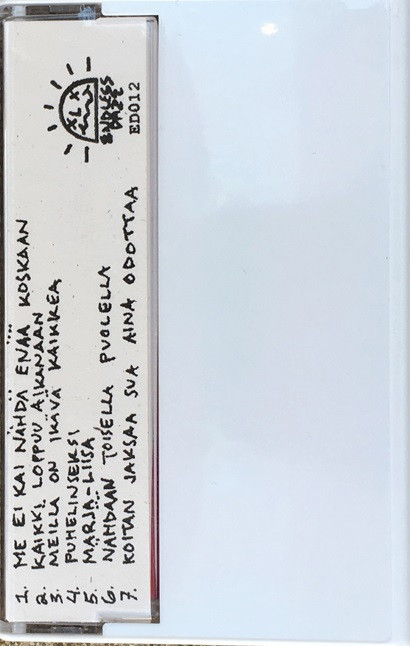 1. ME EI KAI NÄHDÄ ENÄÄ KOSKAAN
2. KAIKKI LOPPUU AIKANAAN
3. MEILLÄ ON IKÄVÄ KAIKKEA
4. PUHELINSEKSI
5. MARJA-LIISA
6. NÄHDÄÄN TOISELLA PUOLELLA
7. KOITAN JAKSAA SUA AINA ODOTTAA
ENDLESS
DAZE
ED012